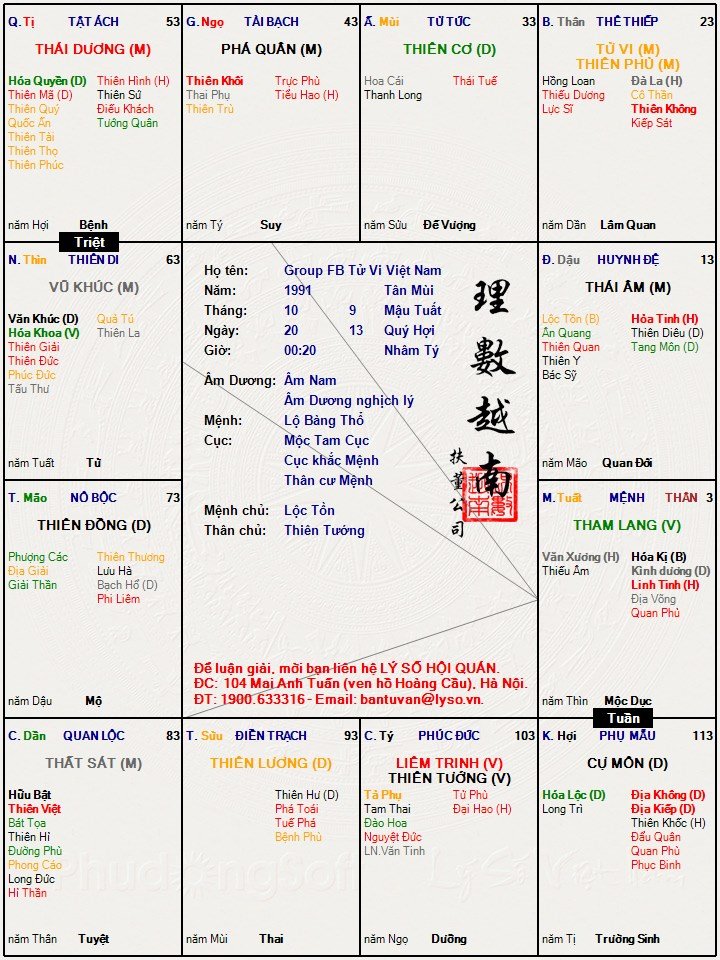 Q. Tị TẬT ÁCH 53
THÁI DƯƠNG (M)
Hóa Quyền (D) Thiên Hình (H)
Thiên Mã (D) Thiên Sứ
Thiên Quý Điếu Khách
Quốc Ấn Tướng Quân
Thiên Tài
Thiên Thọ
Thiên Phúc
năm Hợi Bệnh
G. Ngọ TÀI BẠCH 43
PHÁ QUÂN (M)
Thiên Khôi Trực Phù
Thai Phụ Tiểu Hao (H)
Thiên Trù
năm Tý Suy
Ấ. Mùi TỬ TỨC 33
THIÊN CƠ (D)
Hoa Cái Thái Tuế
Thanh Long
năm Sửu Đế Vượng
B. Thân THÊ THIẾP 23
TỬ VI (M)
THIÊN PHỦ (M)
Hồng Loan Đà La (H)
Thiếu Dương Cô Thần
Lực Sĩ Thiên Không
Kiếp Sát
năm Dần Lâm Quan
Triệt
N. Thìn THIÊN DI 63
VŨ KHÚC (M)
Văn Khúc (D) Quả Tú
Hóa Khoa (V) Thiên La
Thiên Giải
Thiên Đức
Phúc Đức
Tấu Thư
năm Tuất Tử
Họ tên: Group FB Tử Vi Việt Nam
Năm: 1991 Tân Mùi
Tháng: 10 9 Mậu Tuất
Ngày: 20 13 Quý Hợi
Giờ: 00:20 Nhâm Tý
Âm Dương: Âm Nam
Âm Dương nghịch lý
Mệnh: Lộ Bàng Thổ
Cục: Mộc Tam Cục
Cục khắc Mệnh
Thân cư Mệnh
Mệnh chủ: Lộc Tồn
Thân chủ: Thiên Tướng
理數越南
扶董公司
Để luận giải, mời bạn liên hệ LÝ SỐ HỘI QUÁN.
ĐC: 104 Mai Anh Tuấn (ven hồ Hoàng Cầu), Hà Nội.
ĐT: 1900.633316 - Email: bantuvan@lyso.vn.
Đ. Dậu HUYNH ĐỆ 13
THÁI ÂM (M)
Lộc Tồn (B) Hỏa Tinh (H)
Ân Quang Thiên Diêu (D)
Thiên Quan Tang Môn (D)
Thiên Y
Bác Sỹ
năm Mão Quan Đới
T. Mão NÔ BỘC 73
THIÊN ĐỒNG (D)
Phượng Các Thiên Thương
Địa Giải Lưu Hà
Giải Thần Bạch Hổ (D)
Phi Liêm
năm Dậu Mộ
M. Tuất MỆNH THÂN 3
THAM LANG (V)
Văn Xương (H) Hóa Kị (B)
Thiếu Âm Kình dương (D)
Linh Tinh (H)
Địa Võng
Quan Phủ
năm Thìn Mộc Dục
Tuần
C. Dần QUAN LỘC 83
THẤT SÁT (M)
Hữu Bật
Thiên Việt
Bát Tọa
Thiên Hỉ
Đường Phù
Phong Cáo
Long Đức
Hỉ Thần
năm Thân Tuyệt
T. Sửu ĐIỀN TRẠCH 93
THIÊN LƯƠNG (D)
Thiên Hư (D)
Phá Toái
Tuế Phá
Bệnh Phù
năm Mùi Thai
C. Tý PHÚC ĐỨC 103
LIÊM TRINH (V)
THIÊN TƯỚNG (V)
Tả Phụ Tử Phù
Tam Thai Đại Hao (H)
Đào Hoa
Nguyệt Đức
LN.Văn Tinh
năm Ngọ Dưỡng
K. Hợi PHỤ MẪU 113
CỰ MÔN (D)
Hóa Lộc (D) Địa Không (D)
Long Trì Địa Kiếp (D)
Thiên Khốc (H)
Đẩu Quân
Quan Phù
Phục Binh
năm Tị Trường Sinh